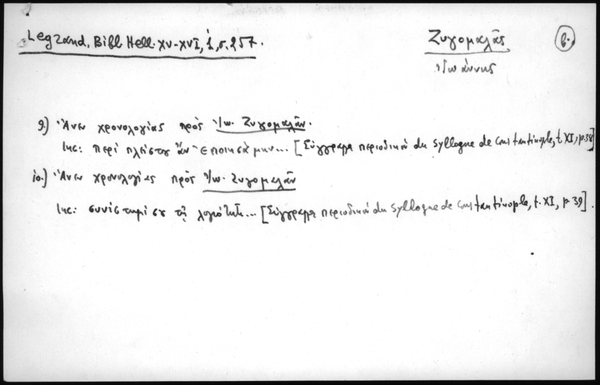 Legrand, Bibl Hell. XV-XVI, 1, σ. 257.
Ζυγομαλᾶς
β.
Ἰωάννης
9) Ἄνευ χρονολογίας πρὸς Ἰω. Ζυγομαλᾶν.
Inc: περὶ πλείστου ἂν ἐποιησάμην... [Σύγγραμμα περιοδικὸν du Syllogue de Constantinople, t. XI, p. 38]
10.) Ἄνευ χρονολογίας πρὸς Ἰω. Ζυγομαλᾶν
Inc: συνίστημί σου τῇ λογιότητι... [Σύγγραμμα περιοδικὸν du Syllogue de Constantinople, t. XI, p 39].